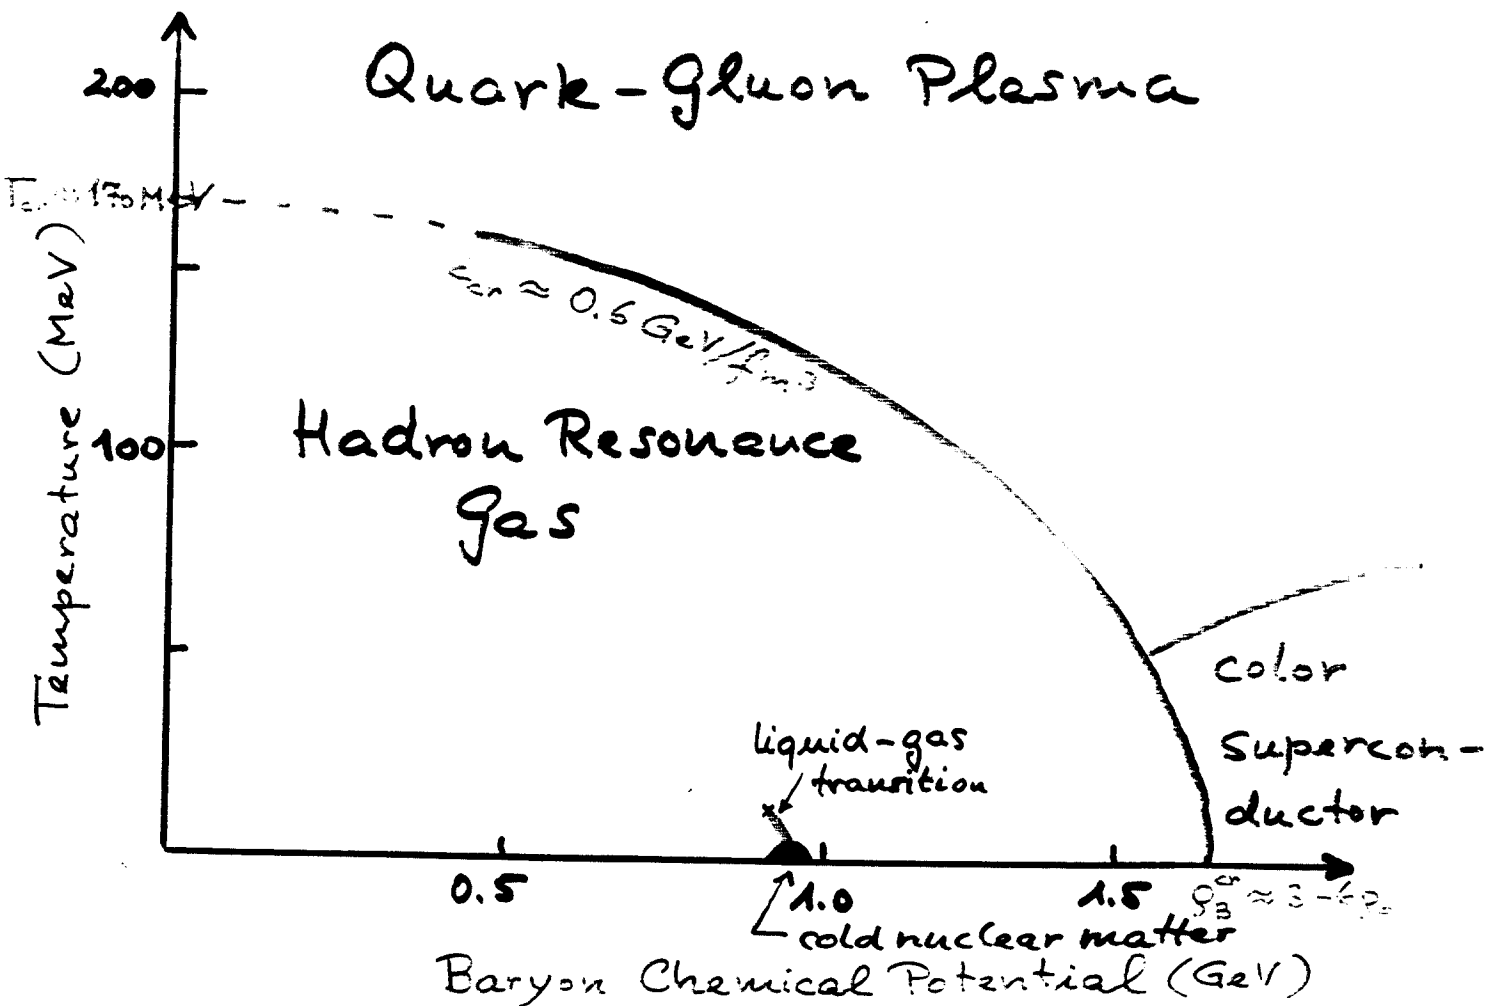 200
Quark-Gluon Plasma
170 MeV
≈ 0.6 GeV/fm³
Temperature (MeV)
100
Hadron Resonance
Gas
color
supercon-
ductor
liquid-gas
transition
0.5
1.0
1.5
cold nuclear matter
Baryon Chemical Potential (GeV)